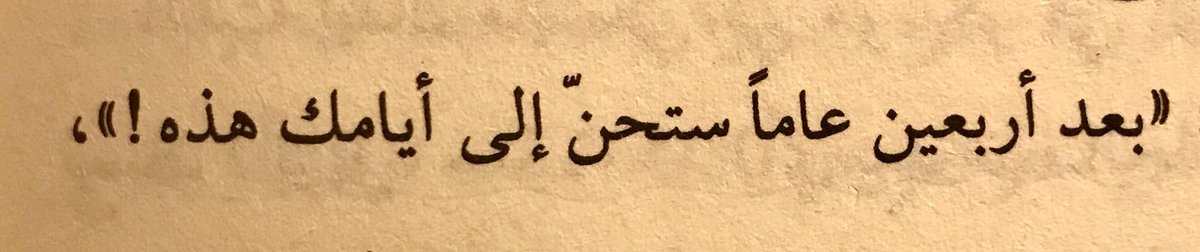 «بعد أربعين عاماً ستحنّ إلى أيامك هذه!»،